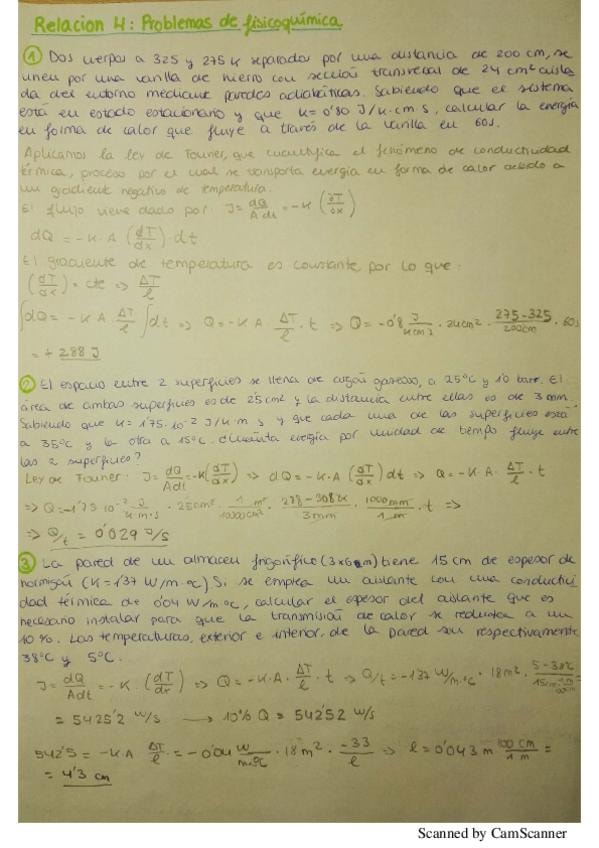 Relacion 4: Problemas de fisicoquímica
① Dos cuerpos a 325 y 275 K separados por una distancia de 200 cm, se
unen por una varilla de hierro con sección transversal de 24 cm² aisla
da del entorno mediante paredes adiabáticas. Sabiendo que el sistema
está en estado estacionario y que K = 0'80 J/K·cm·s, calcular la energía
en forma de calor que fluye a través de la varilla en 60s.
Aplicamos la ley de Fourier, que cuantifica el fenómeno de conductividad
térmica, proceso por el cual se transporta energía en forma de calor debido a
un gradiente negativo de temperatura.
El flujo viene dado por: J = dQ/A dt = -K (dT/dx)
dQ = -K·A (dT/dx)·dt
El gradiente de temperatura es constante, por lo que:
(dT/dx) = cte => ΔT/l
∫dQ = -K A · ΔT/l ∫dt => Q = -K A · ΔT/l · t => Q = -0'8 · 24cm² · 275-325/200cm · 60s
= + 288 J
② El espacio entre 2 superficies se llena de argón gaseoso, a 25°C y 1'0 bar. El
área de ambas superficies es de 25 cm² y la distancia entre ellas es de 3 mm.
Sabiendo que K = 1'75·10⁻² J/K·m·s y que cada una de las superficies está
a 35°C y la otra a 15°C. ¿Cuánta energía por unidad de tiempo fluye entre
las 2 superficies?
Ley de Fourier: J = dQ/Adt = -K(dT/dx) => dQ = -K·A (dT/dx) dt => Q = -K·A· ΔT/l · t
=> Q = -1'75·10⁻² J/K·m·s · 25cm² · 1 m²/10000cm² · 278-308K/3mm · 1000mm/1m · t =>
=> Q/t = 0'029 J/s
③ La pared de un almacen frigorífico (3x6 m) tiene 15 cm de espesor de
hormigón (K = 1'37 W/m·°C) Si se emplea un aislante con una conductivi
dad térmica de 0'04 W/m°C, calcular el espesor del aislante que es
necesario instalar para que la transmisión de calor se reduzca a un
10%. Las temperaturas, exterior e interior de la pared son respectivamente
38°C y 5°C.
J = dQ/Adt = -K·(dT/dx) => Q = -K·A· ΔT/l · t => Q/t = -1'37 W/m·°C · 18m² · 5-38°C/15cm·1m/100cm
= 5425'2 W/s → 10% Q = 542'52 W/s
542'5 = -K·A ΔT/l = -0'04 W/m·°C · 18m² · -33/l => l = 0'043 m 100 cm/1 m =
= 4'3 cm
Scanned by CamScanner